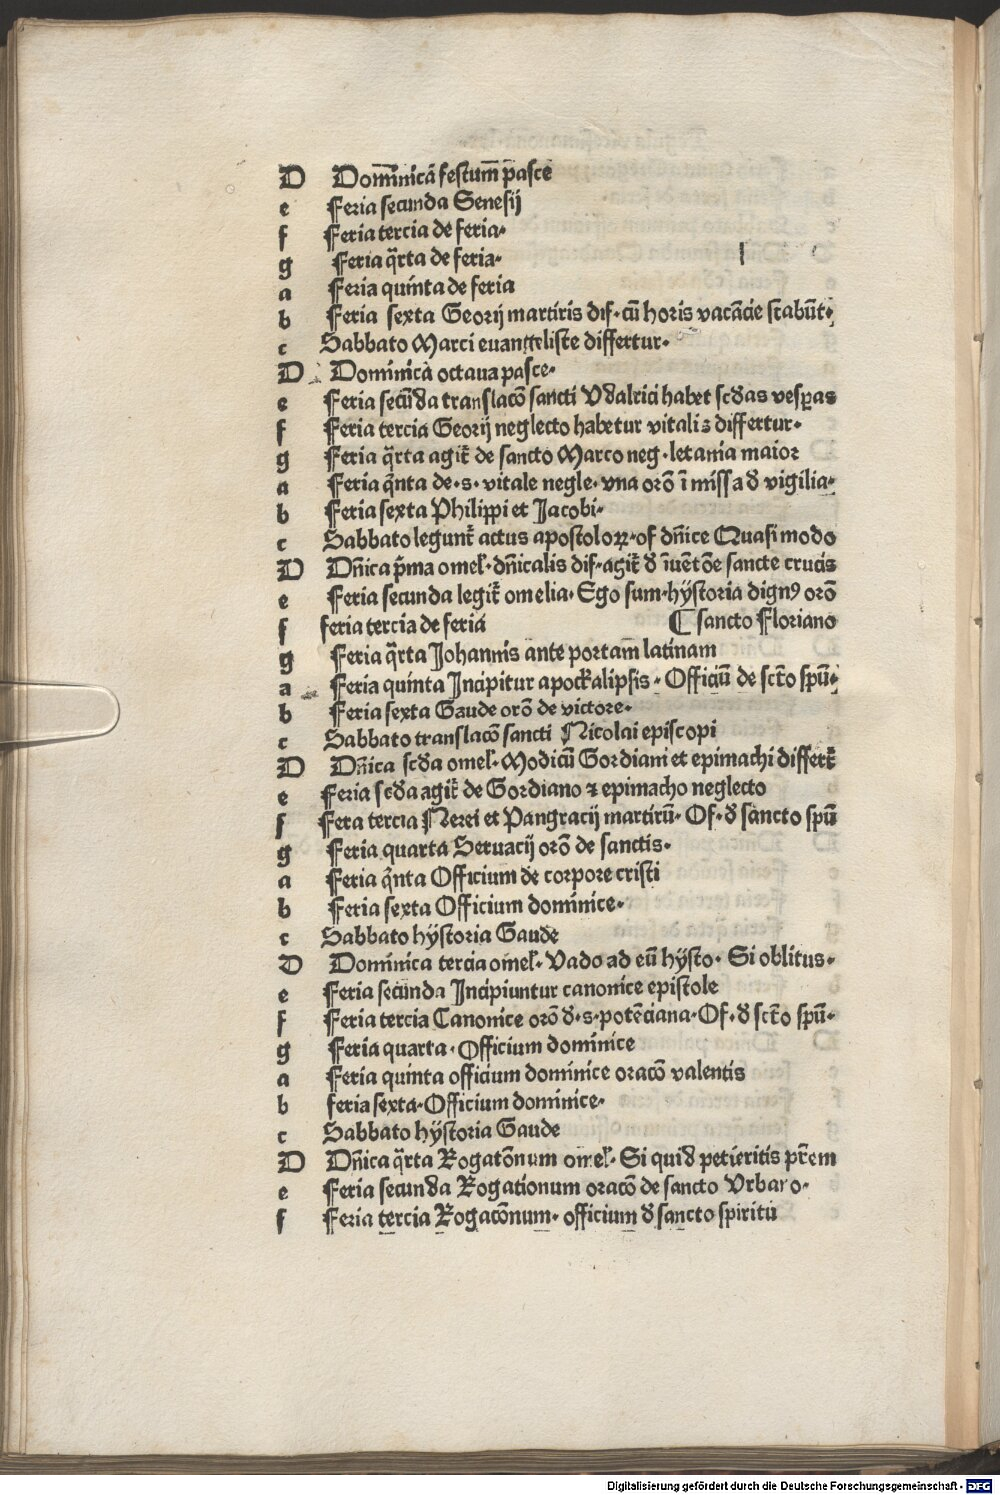 D Dom̄inicā festum̄ pasce
e Feria secunda Senesij
f Feria tercia de feria·
g Feria q̄rta de feria·
a Feria quinta de feria
b Feria sexta Georij martiris dif· cū horis vacācie scabūt·
c Sabbato Marci euangeliste differtur·
D Dominica octaua pasce·
e Feria secūda translacōꝫ sancti Vdalrici habet scd̄as vesꝑas
f Feria tercia Georij neglecto habetur vitalis differtur·
g Feria q̄rta agit̄ de sancto Marco neg· letania maior
a Feria qn̄ta de· s· vitale negle· vna orō ī missa d̄ vigilia·
b Feria sexta Philippi et Jacobi·
c Sabbato legunt̄ actus apostoloꝝ· of dn̄ice Quasi modo
D Dn̄ica p̄ma omel̄· dn̄icalis dif· agit̄ d̄ īuētōe sancte crucis
e Feria secunda legit̄ omelia· Ego sum· hystoria dignꝰ orō
f feria tercia de feria ⸿ sancto Floriano
g Feria q̄rta Johannis ante portam latinam
a Feria quinta Incipitur apockalipsis· Officiū de sct̄o spū·
b Feria sexta Gaude orō de victore·
c Sabbato translacōꝫ sancti Nicolai episcopi
D Dn̄ica scd̄a omel̄· Modicū Gordiani et epimachi differt̄
e Feria scd̄a agit̄ de Gordiano ⁊ epimacho neglecto
f Fera tercia Nerei et Pangracij martirū· Of· d̄ sancto spū
g Feria quarta Seruacij orō de sanctis·
a Feria qn̄ta Officium de corpore cristi
b Feria sexta Officium dominice·
c Sabbato hystoria Gaude
D Dominica tercia omel̄· Vado ad eū hysto· Si oblitus·
e Feria secunda Incipiuntur canonice epistole
f Feria tercia Canonice orō d̄· s· potēciana· Of· d̄ sct̄o spū·
g Feria quarta· Officium dominice
a Feria quinta officium dominice oracōꝫ valentis
b feria sexta· Officium dominice·
c Sabbato hystoria Gaude
D Dn̄ica q̄rta Rogatōnum omel̄· Si quid petieritis pr̄em
e Feria secunda Rogationum oracōꝫ de sancto Vrbano·
f Feria tercia Rogacōnum· officium d̄ sancto spiritu
Digitalisierung gefördert durch die Deutsche Forschungsgemeinschaft - DFG